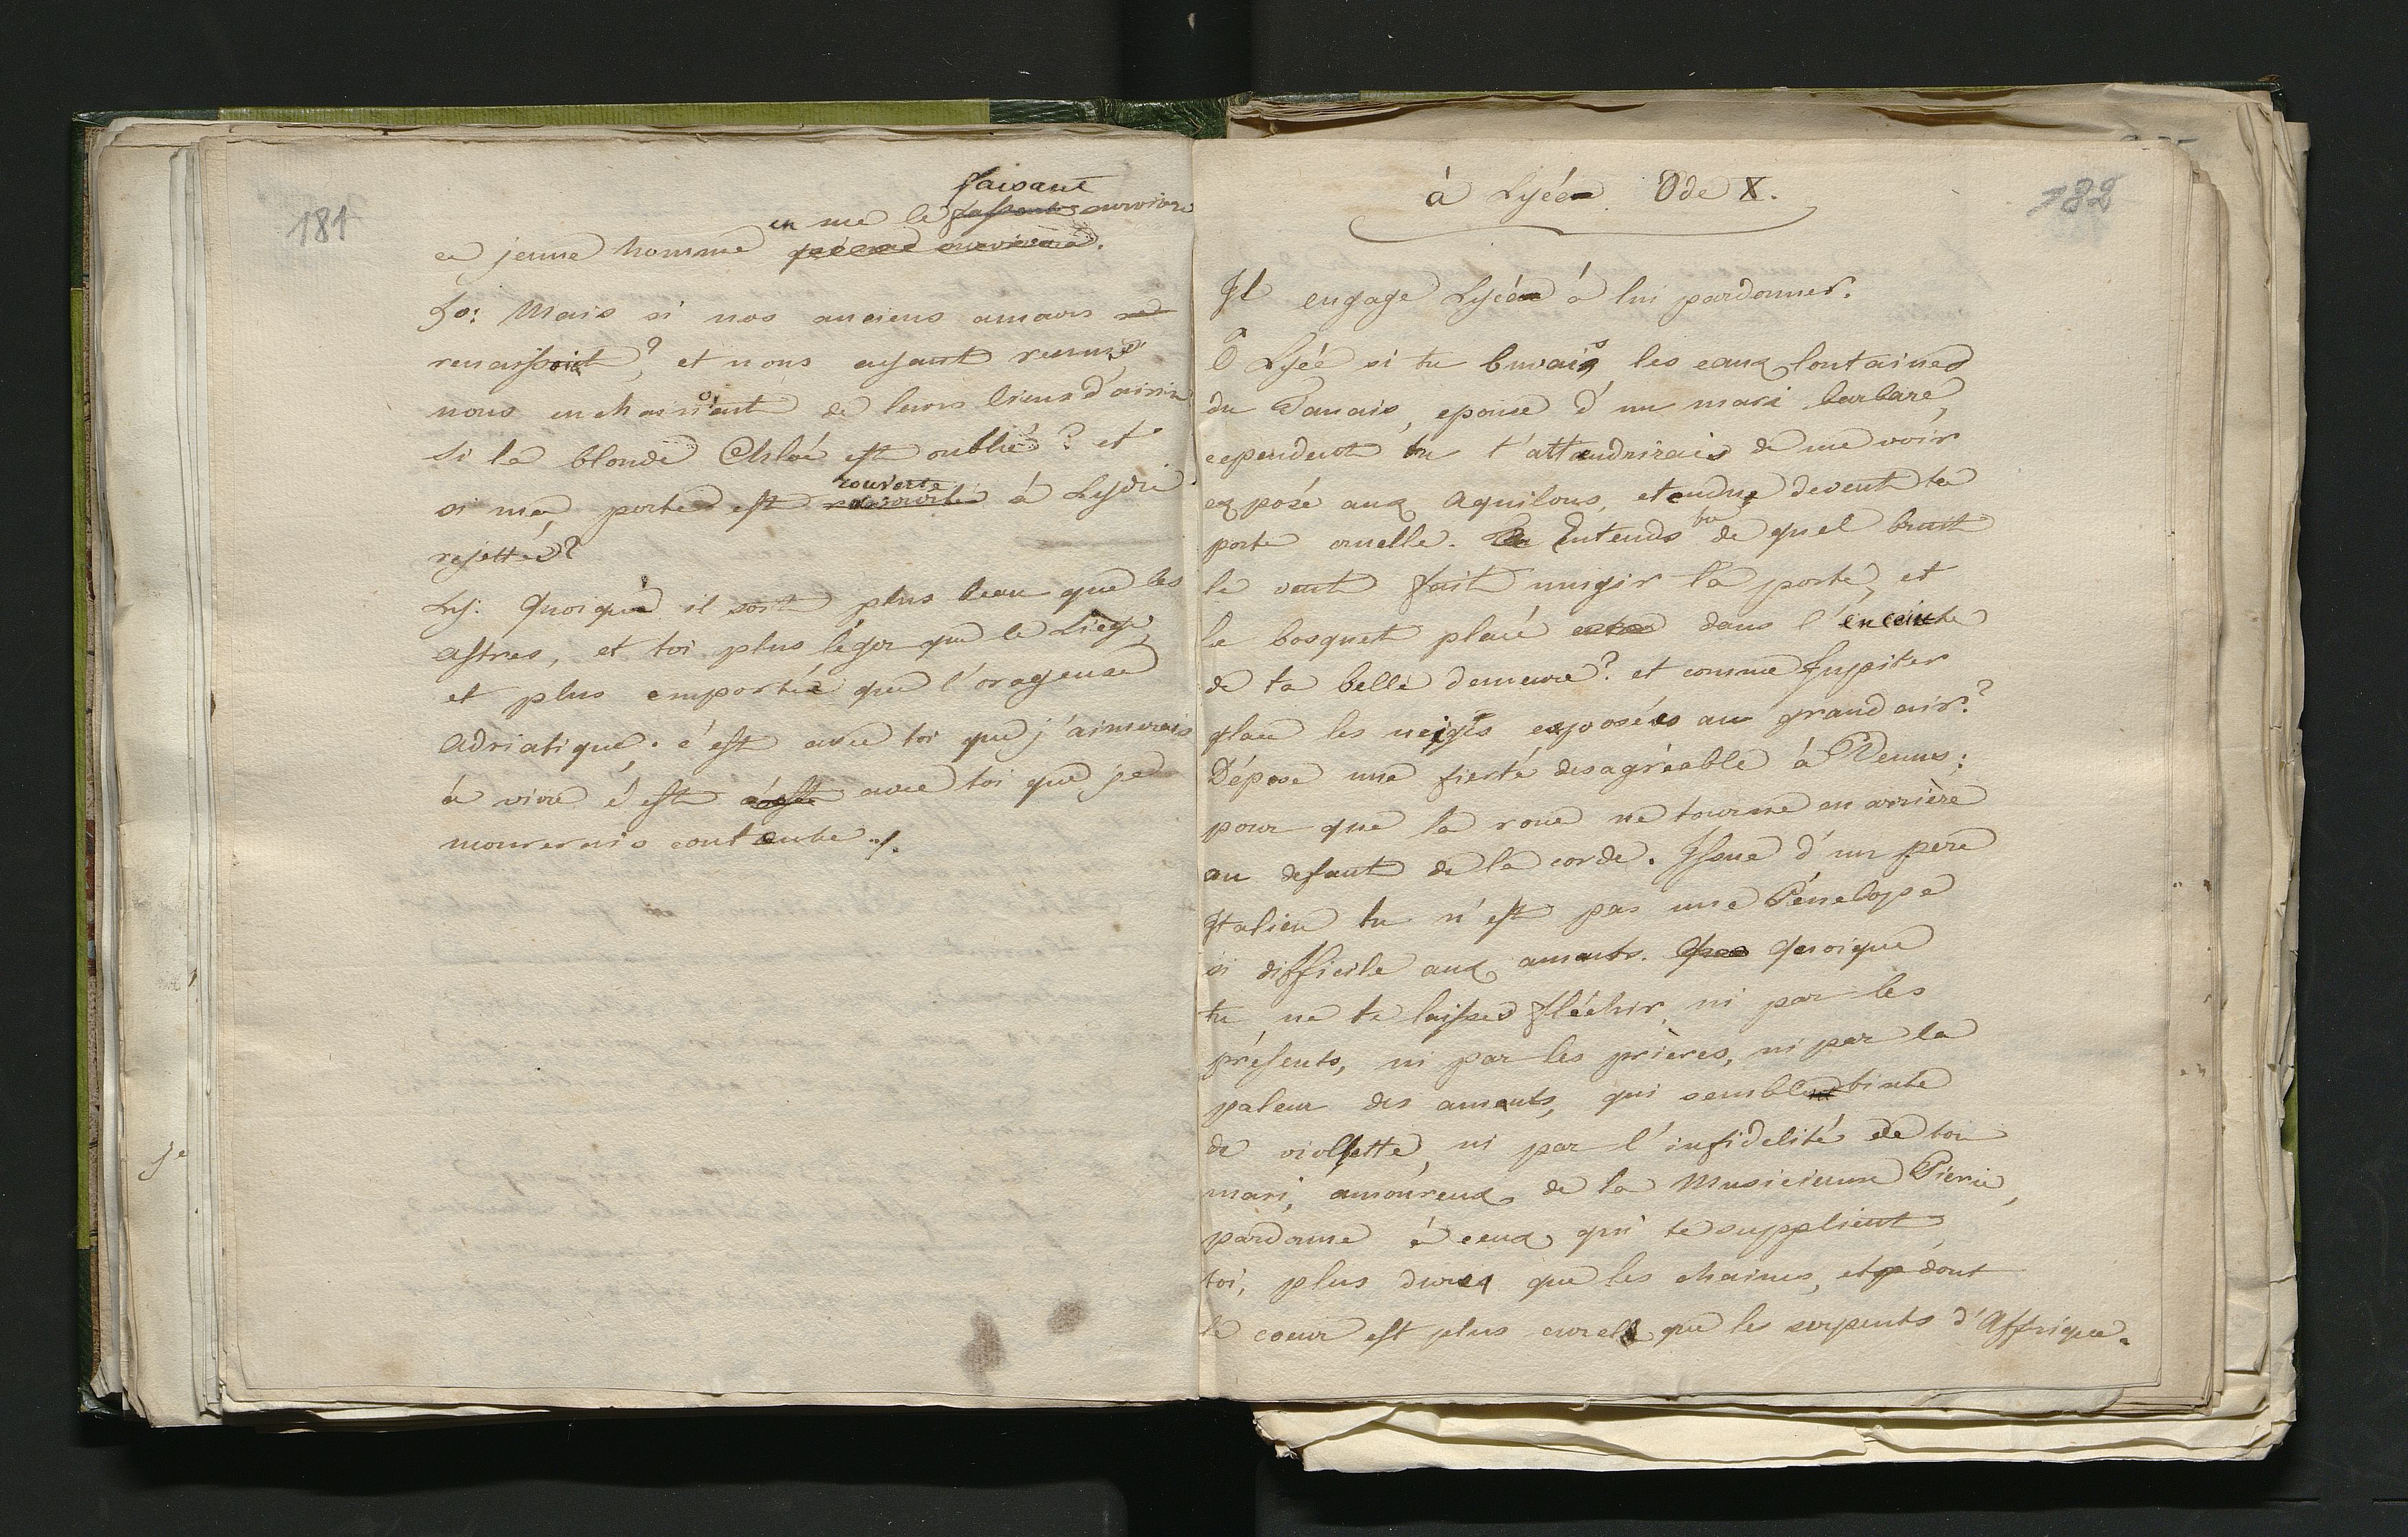 181
faisant
en me le fassent survivre
ce jeune homme
Ho: Mais si nos anciens amours
renaissoit? et nous ayant reunis,
nous enchainoient de leurs liens d'airin
Si la blonde Chloé est oublié? et
rouverte
si ma porte est à Lydie
rejettée?
Ly: Quoique il soit plus beau que les
astres, et toi plus léger que le Liège,
et plus emportée que l'orageuse
Adriatique; c'est avec toi que j'aimerais
à vivre c'est avec toi que je
mourerais contente ./.
182
à Lycée Ode X.
Il engage Lycée à lui pardonner.
Ô Lycé si tu buvais les eaux lontaines
du Tanais, epouse d'un mari barbare,
cependent tu t'attendrirais de me voir
exposé aux Aquilons, etendu devent ta
porte cruelle. Entends tu de quel bruit
le vent fait mugir ta porte, et
le bosquet placé dans l'enceinte
de ta belle demeure? et comme Jupiter
glace les neiges exposées au grand air?
Dépose une fierté desagréable à Venus;
pour que la roue ne tourne en arrière
au defaut de la corde. Issue d'un pere
Italien tu n'est pas une Pénelope
si difficile aux amants. Quoique
tu ne te laisses fléchir, ni par les
présents, ni par les prières, ni par la
paleur des aments, qui semble tinte
de violette, ni par l'infidelité de ton
mari, amoureux de la Musicienne Piérie,
pardonne à ceux qui te supplient
toi, plus dure que les chaines, et dont
le coeur est plus cruel que les serpents d'Affrique.